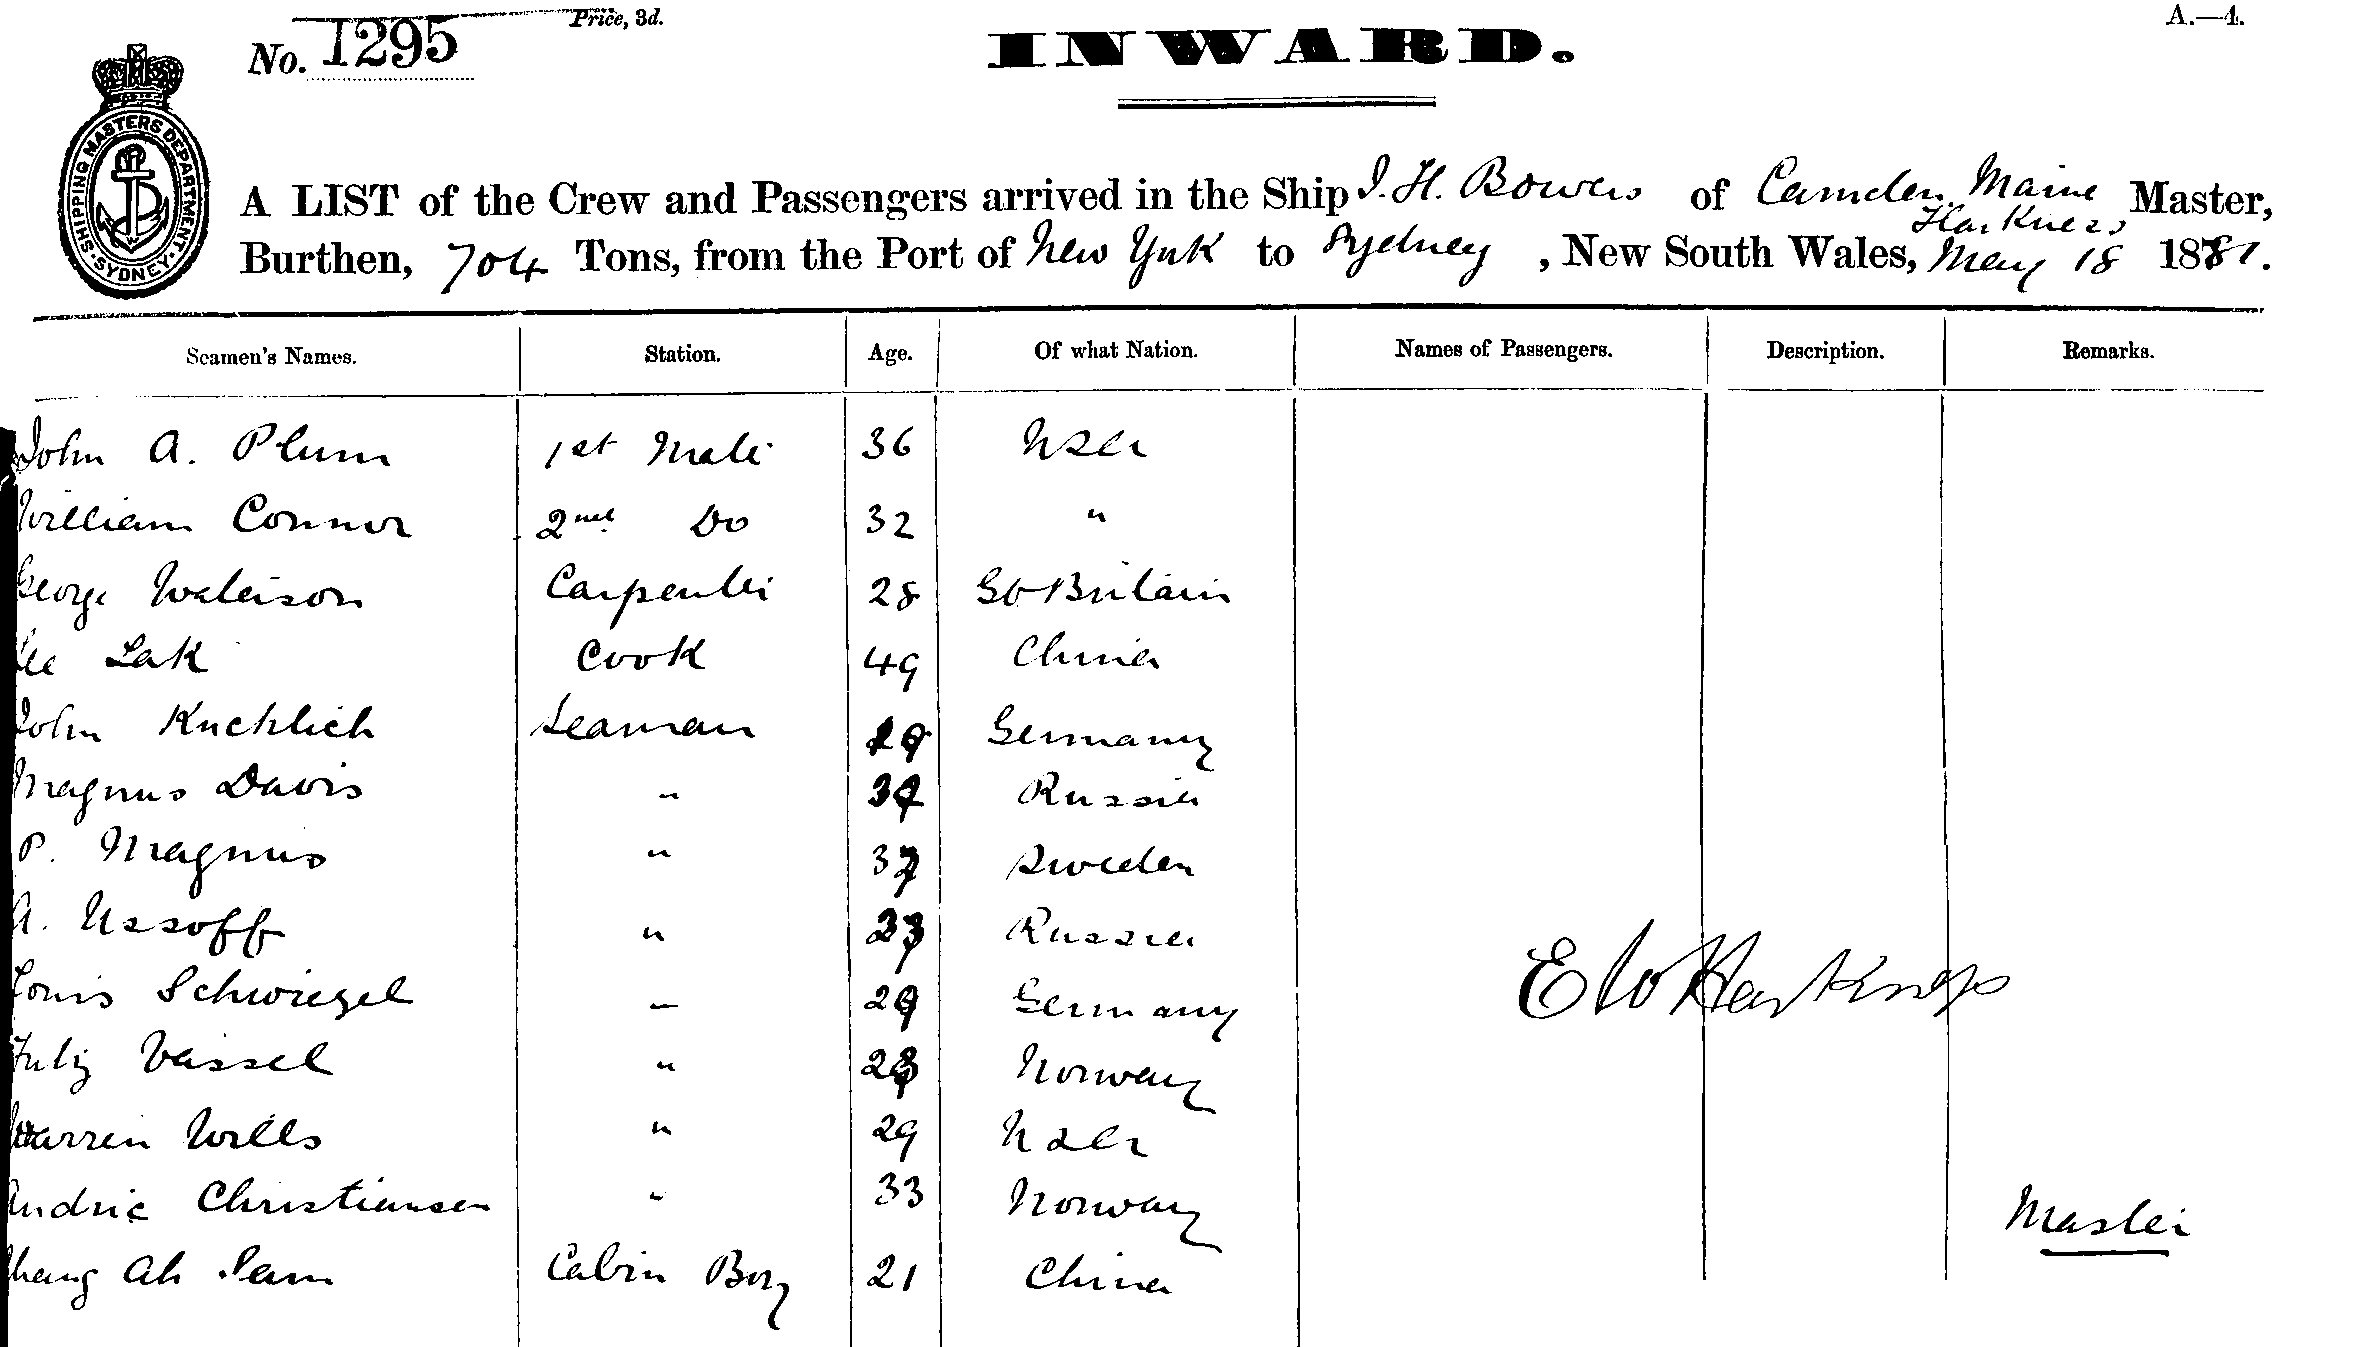 No. 1295
Price, 3d.
INWARD.
A.—4.
SHIPPING MASTERS DEPARTMENT SYDNEY
A LIST of the Crew and Passengers arrived in the Ship J. H. Bowers of Camden Maine Master,
Harkness
Burthen, 704 Tons, from the Port of New York to Sydney, New South Wales, May 18 1881.
Seamen's Names. Station. Age. Of what Nation. Names of Passengers. Description. Remarks.
John A. Plum 1st Mate 36 USA
William Connor 2nd Do 32 "
George Waterson Carpenter 28 Gt Britain
Lee Lak Cook 49 China
John Kuchlich Seaman Germany
Magnus Davis " Russia
P. Magnus " Sweden
A. Ussoff " Russia
Louis Schwiegel " 29 Germany
Vassel " Norway
Warren Wills " 29 USA
Andrie Christiansen " 33 Norway
Ah Cabin Boy 21 China
E W Harkness
Master